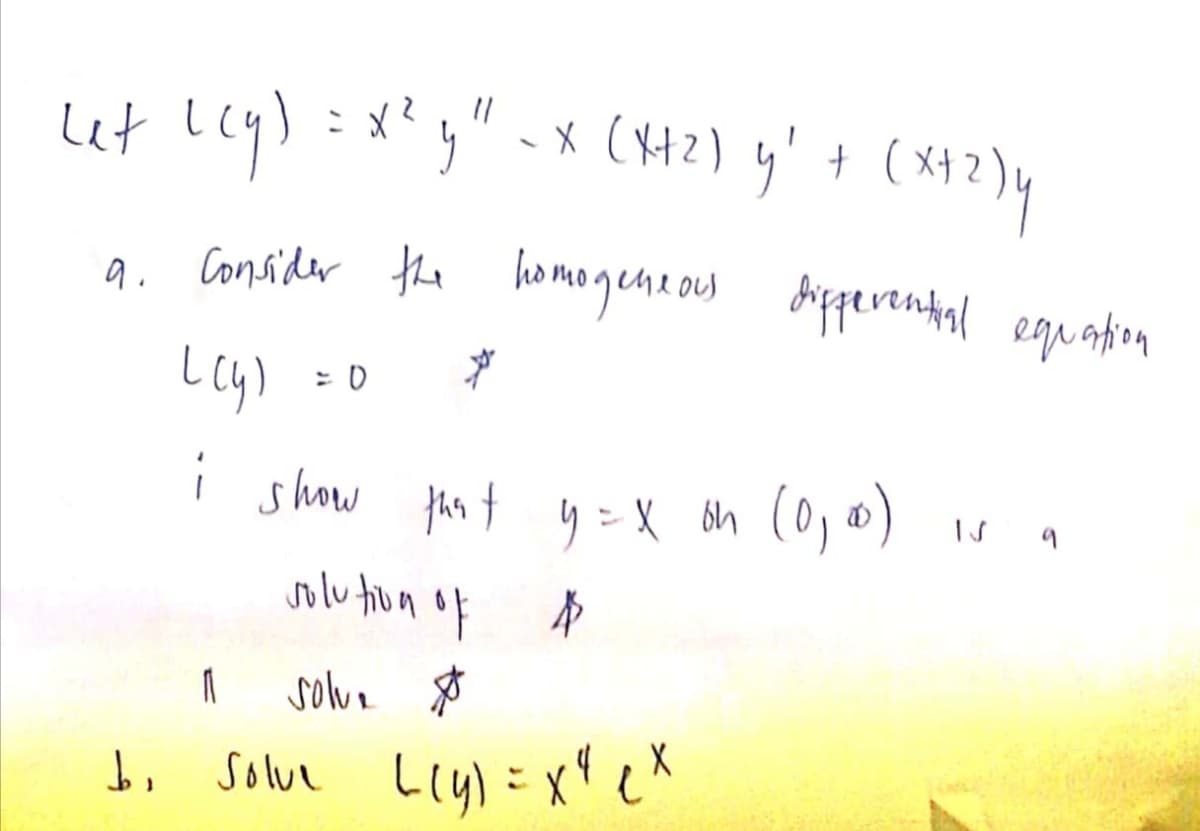 Let L(y) = x² y'' - x (x+2) y' + (x+2)y
a. Consider the homogeneous differential equation
L(y) = 0 *
i show that y = x on (0, ∞) is a
solution of *
ii solve *
b. Solve L(y) = x⁴ eˣ